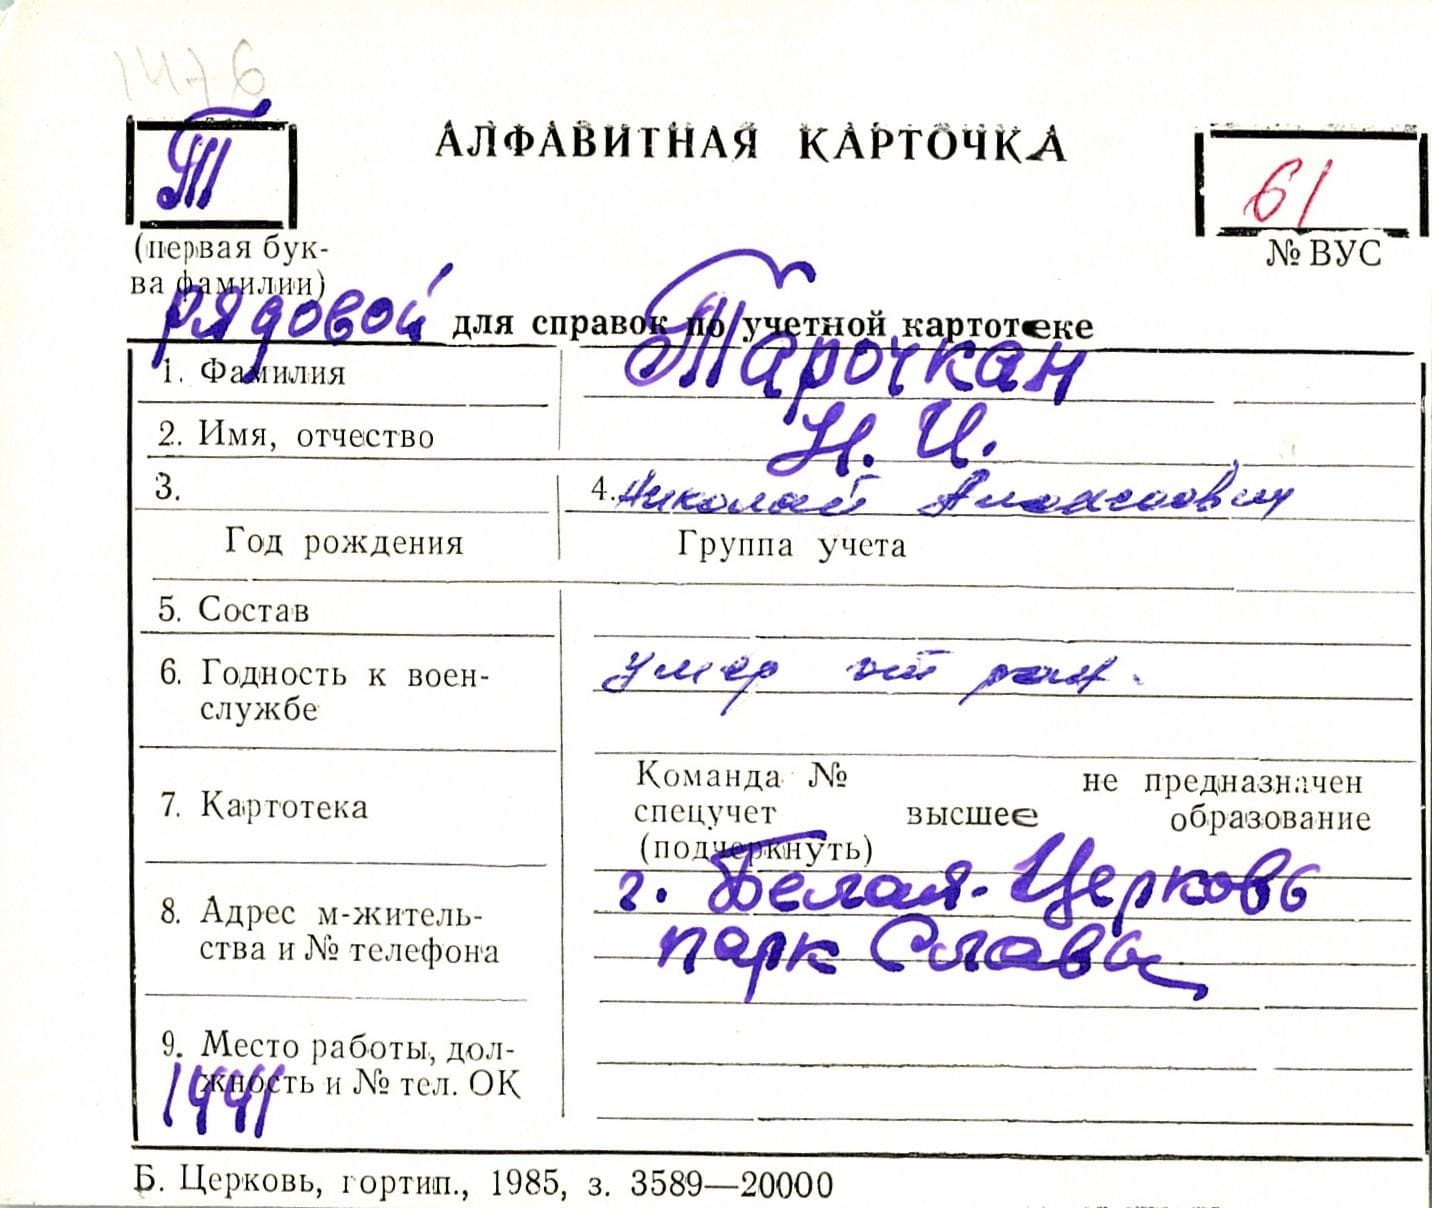 1476
Т
АЛФАВИТНАЯ КАРТОЧКА
61
(первая бук-
ва фамилии)
№ ВУС
рядовой для справок по учетной картотеке
1. Фамилия Тарочкан
2. Имя, отчество Н. И.
3. 4. Николай
Год рождения Группа учета
5. Состав
6. Годность к воен- умер от ран.
службе
7. Картотека
Команда № не предназначен
спецучет высшее образование
(подчеркнуть)
8. Адрес м-житель- г. Белая-Церковь
ства и № телефона парк Славы
9. Место работы, дол-
жность и № тел. ОК
1941
Б. Церковь, гортип., 1985, з. 3589—20000